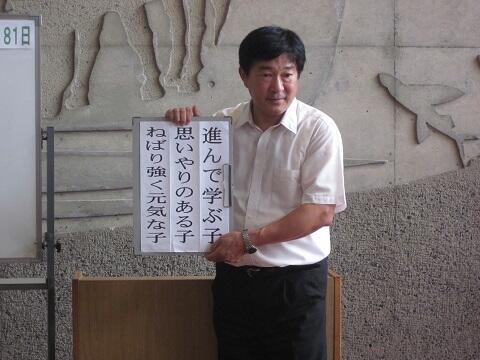 進んで学ぶ子
思いやりのある子
ねばり強く元気な子
81日